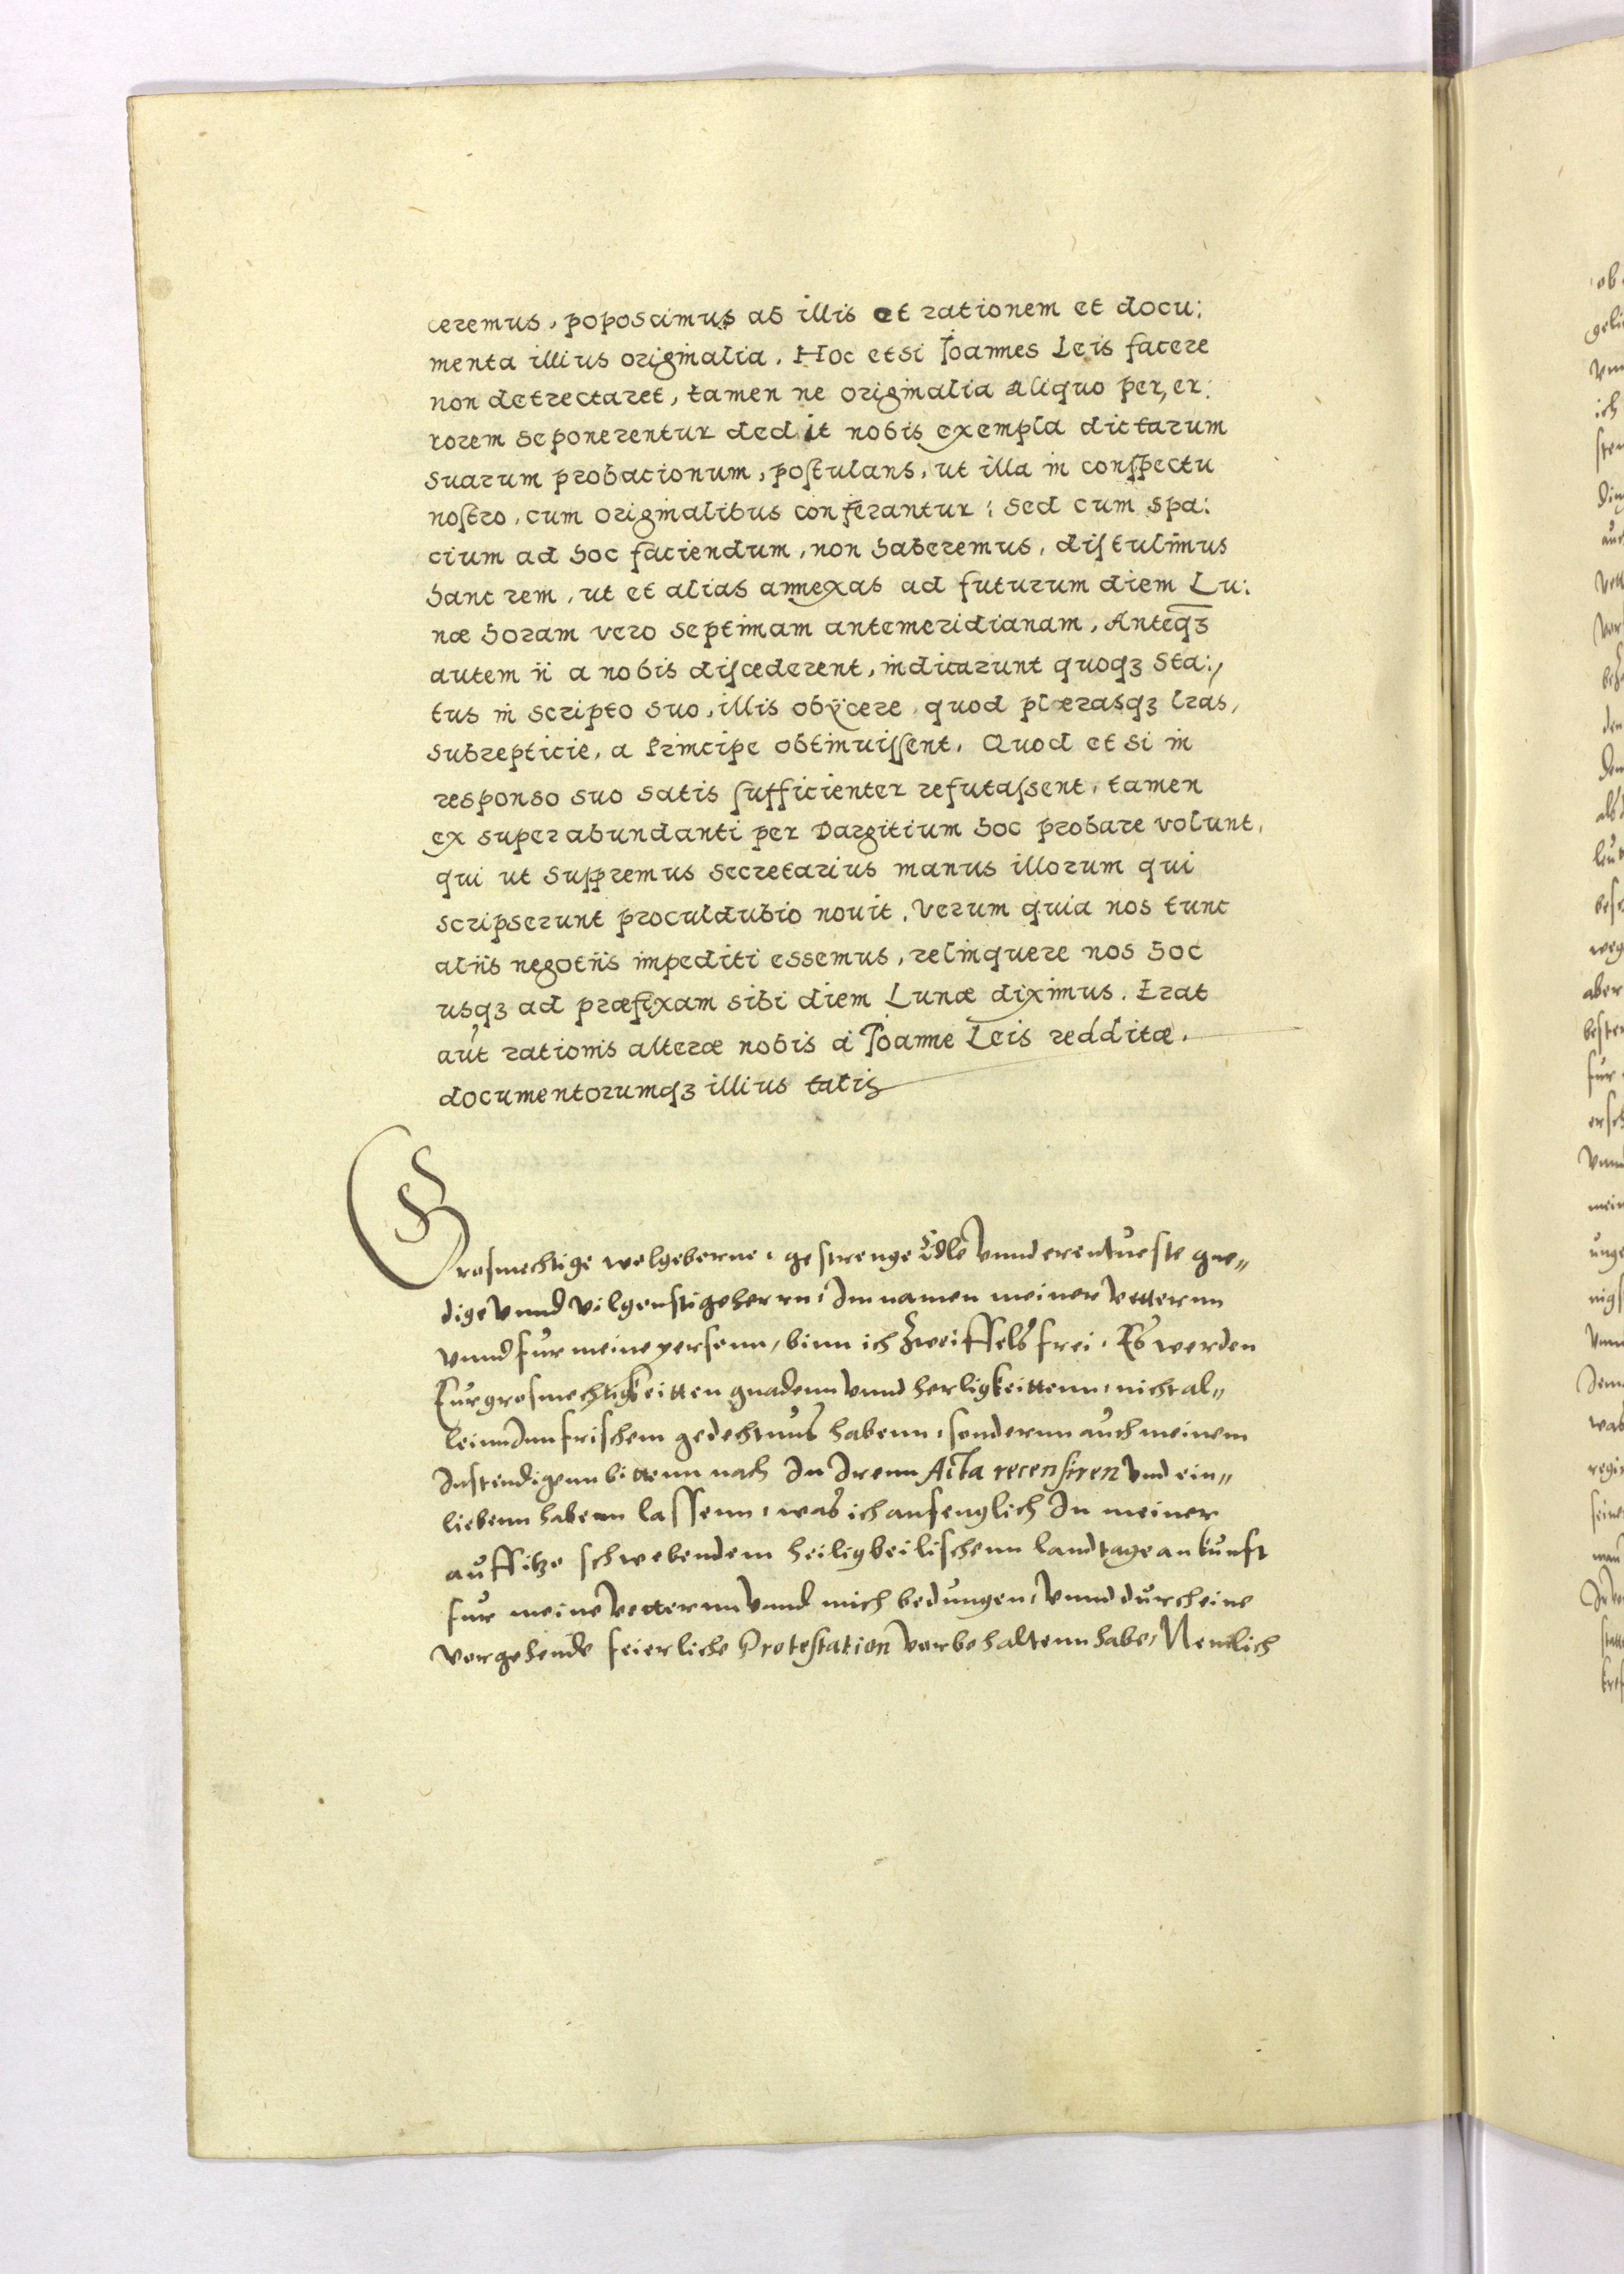 ceremus, poposcimus ab illis et rationem et docu:
menta illius originalia. Hoc etsi Joannes Leis facere
non detrectaret, tamen ne originalia aliquo per, er:
rorem seponerentur dedit nobis exempla dictarum
suarum probacionum, postulans, ut illa in conspectu
nostro, cum originalibus conferantur: sed cum spa:
cium ad hoc faciendum, non haberemus, distulimus
hanc rem, ut et alias annexas ad futurum diem Lu:
næ horam vero septimam antemeridianam, Anteqȝ
autem ii a nobis discederent, indicarunt quoqȝ Sta:,
tus in scripto suo, illis obÿcere, quod plærasqȝ lras,
subrepticie, a Principe obtinuissent. Quod et si in
responso suo satis sufficienter refutassent, tamen
ex superabundanti per Dargitium hoc probare volunt,
qui ut Suppremus secretarius manus illorum qui
scripserunt proculdubio novit. Verum quia nos tunc
aliis negotiis impediti essemus, relinquere nos hoc
usqȝ ad præfixam sibi diem Lunæ diximus. Erat
aut rationis alteræ nobis a Joanne Leis redditæ.
documentorumqȝ illius talis
Grosmechtige wolgeborne, gestrenge Edle vnnd erentueste gne„
dige vnnd vilgenstige herrn, Im namen meiner vetternn
vnnd fur meine personn, binn ich zweiffels frei, Es werden
Eur grosmechtigkeitten gnadenn vnnd herligkeittenn, nicht al„
leinn Inn frischem gedechtnus habenn, sondernn auch meinem
Instendigenn bittenn nach In Irenn Acta recensiren vnd ein„
liebenn habenn lassenn, was ich anfenglich In meiner
auff itzo schwebendem heiligbeilischenn landtage ankunft
fur meine vetternn vnnd mich bedungen, vnnd durch eine
vorgehende feierliche Protestation vorbehaltenn habe, Nemlich